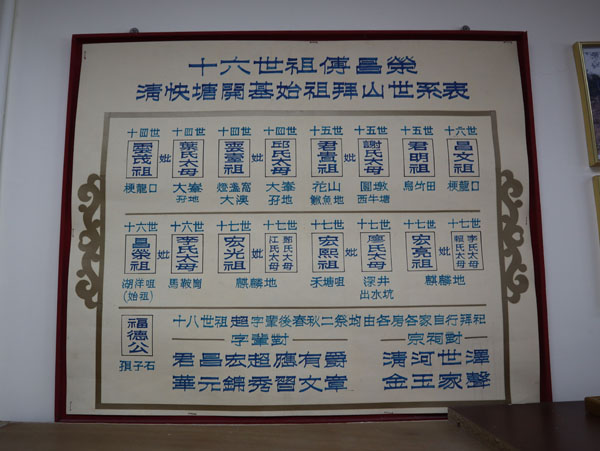 十六世祖傅昌榮
清快塘開基始祖拜山世系表
十四世 十四世 十四世 十四世 十五世 十五世 十五世 十六世
雲茂祖 妣 葉氏太母 雲臺祖 妣 邱氏太母 君貴祖 妣 謝氏太母 君明祖 昌文祖
梗龍口 大峯 燈盞窩 大峯 花山 圓墩 烏竹田 梗龍口
孖地 大澳 孖地 魚地 西牛塘
十六世 十六世 十七世 十七世 十七世 十七世 十七世 十七世
昌榮祖 妣 李氏太母 宏光祖 妣 鄭氏太母 江氏太母 宏熙祖 妣 廖氏太母 宏亮祖 妣 李氏太母 氏太母
湖洋咀 馬鞍崗 麒麟地 禾塘咀 深井 麒麟地
(始祖) 出水坑
福德公
子石
十八世祖超字輩後春秋二祭均由各房各家自行拜祀
字輩對 宗祠對
君昌宏超應有爵 清河世澤
華元錦秀習文章 金玉家聲